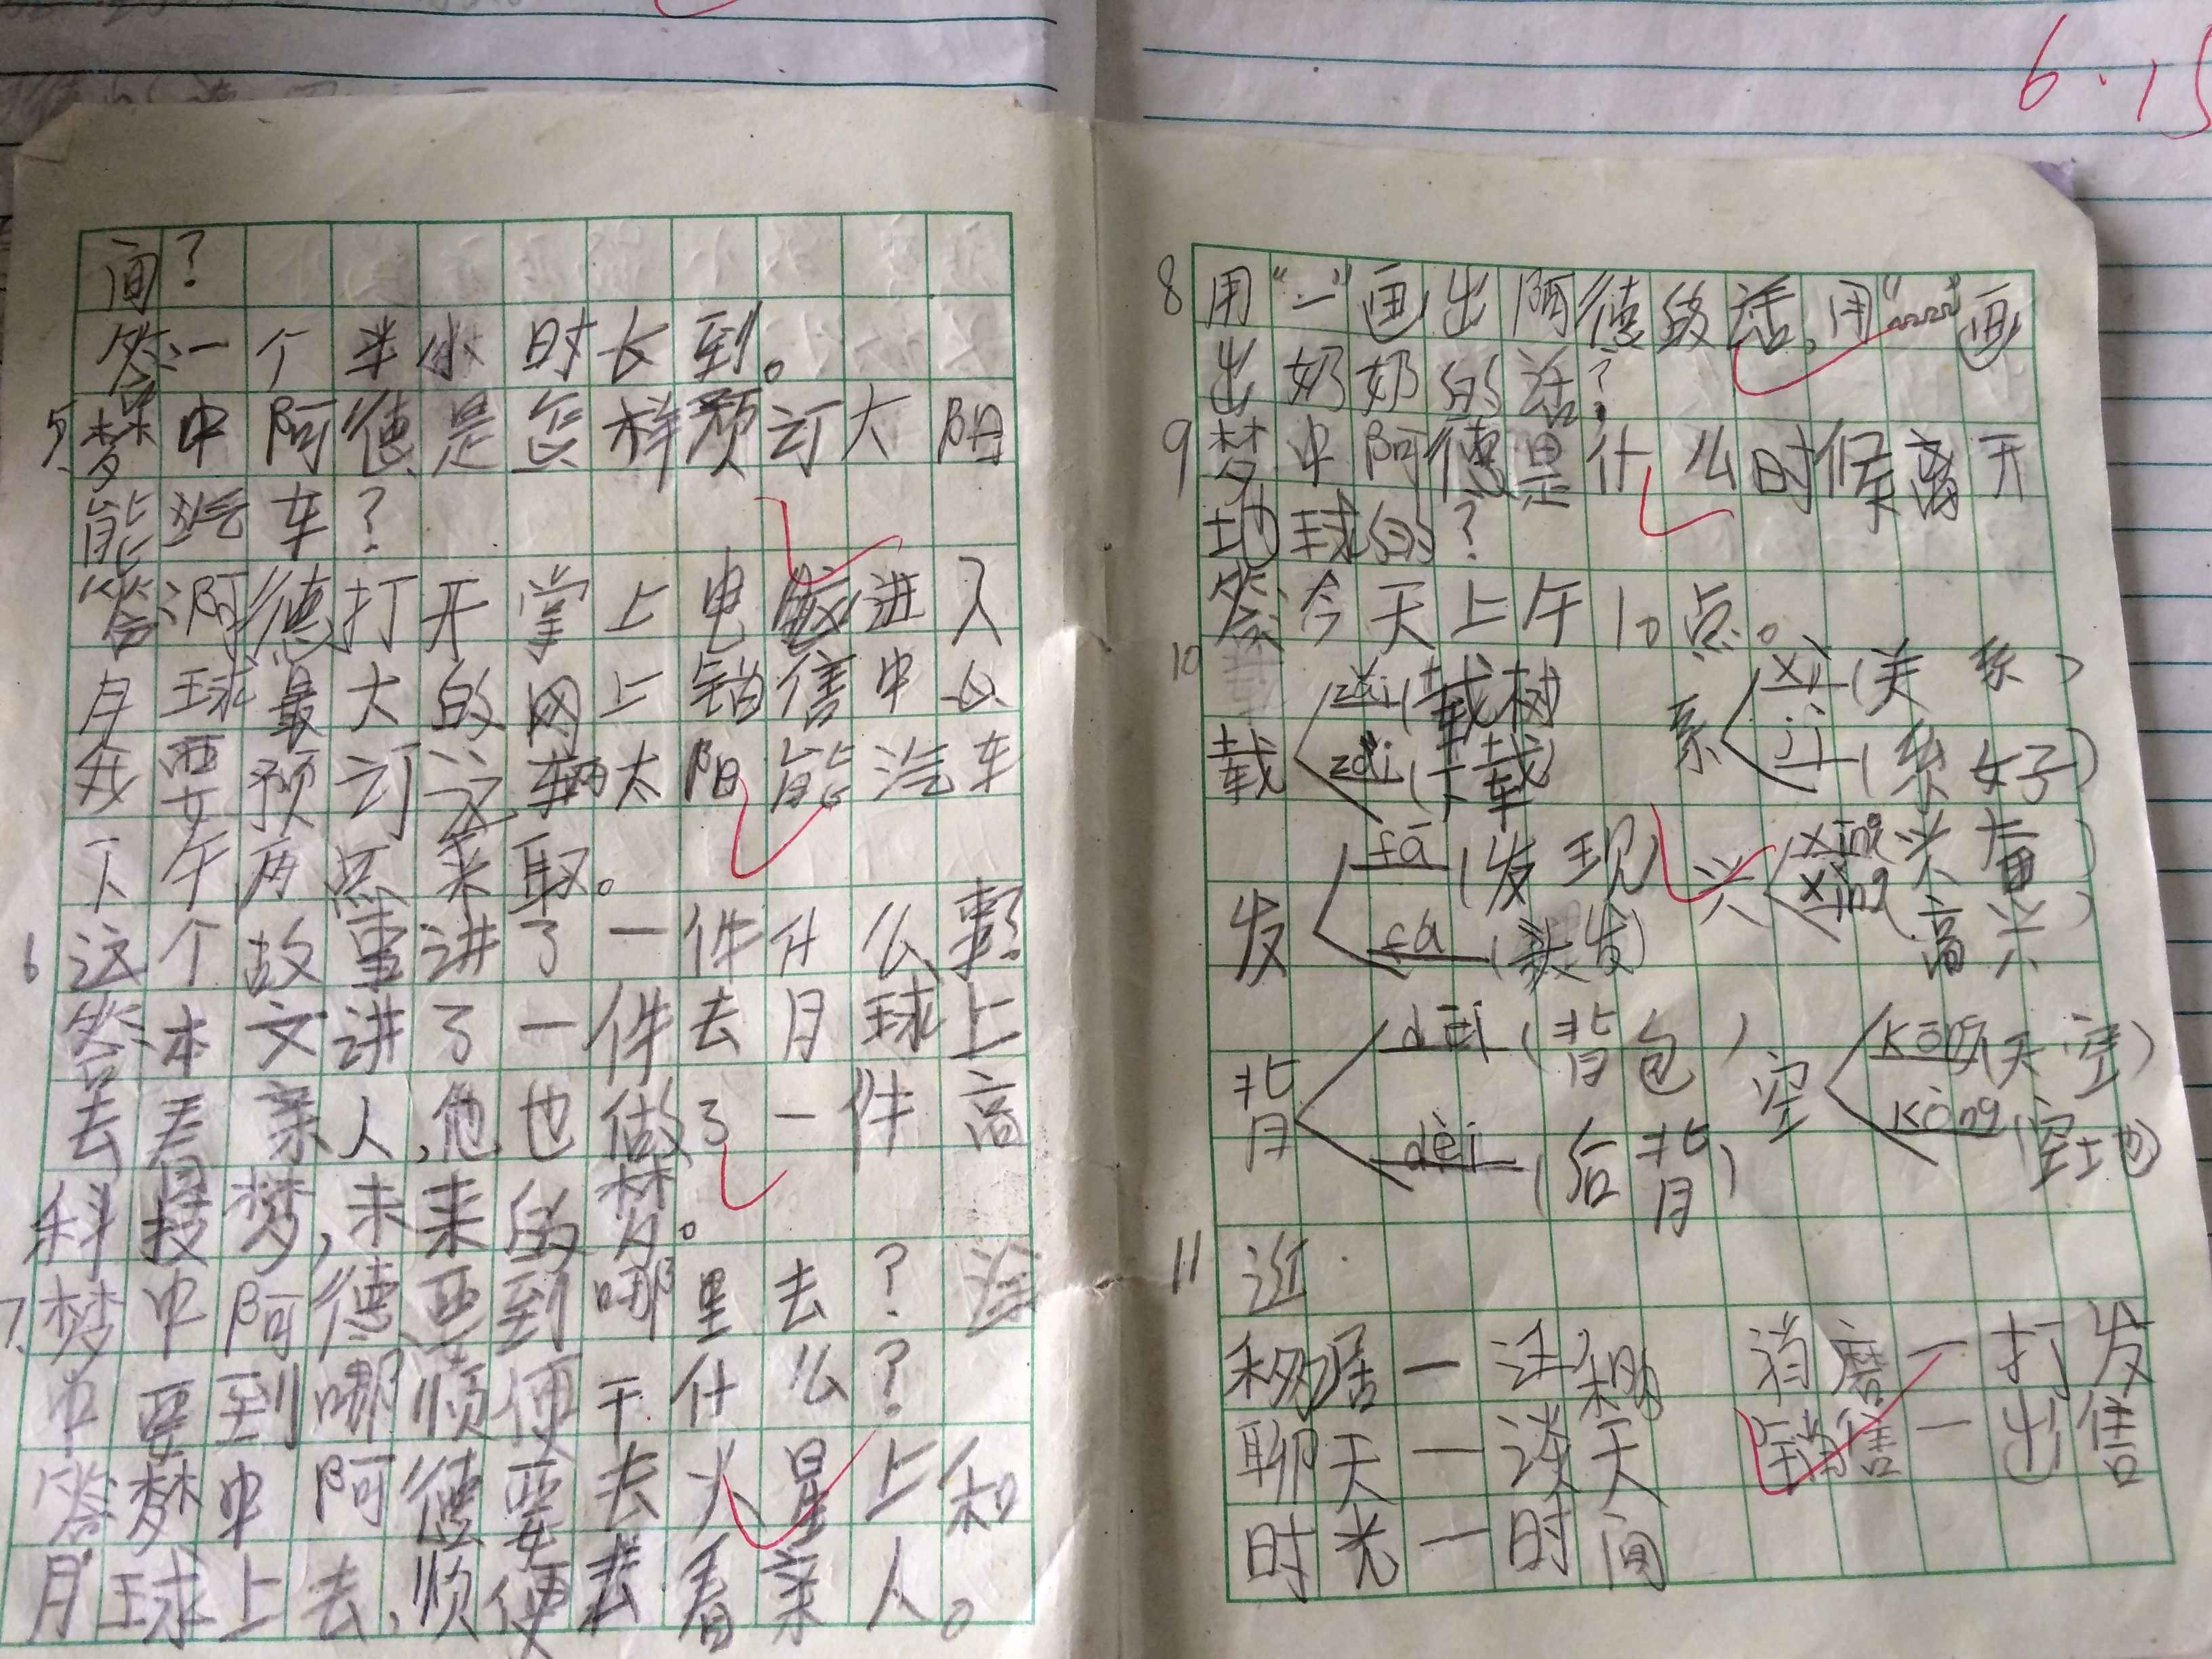 间?
答:一个半小时长到。
5.梦中阿德是怎样预订大阳
能汽车?
答:阿德打开掌上电脑进入
月球最大的网上销售中心
我要预订这辆太阳能汽车
下午两点来取。
6 这个故事讲了一件什么事?
答:本文讲了一件去月球上
去看亲人,他也做了一件高
科技梦,未来的梦。
7.梦中阿德要到哪里去?途
中要到哪顺便干什么?
答梦中阿德要去火星上和
月球上去,顺便去看亲人。
6.15
8 用“一”画出阿德的话,用“﹏﹏”画
出奶奶的话?
9 梦中阿德是什么时候离开
地球的?
答:今天上午10点。
10
载 zǎi(载树 zài(下载)
系 xì(关系) jì(系好子)
发 fā(发现) fà(头发)
兴 xīng 兴奋) xìng(高兴)
背 dēi(背包) dèi(后背)
空 kōng(天空) kòng(空地)
11 近
移居一迁移 消磨一打发
聊天一谈天 销售一出售
时光一时间